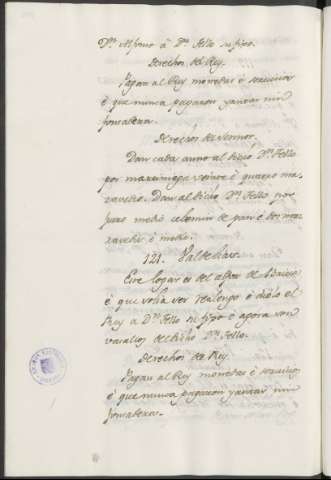 Dn. Alfonso á Dn. Tello su fijo.
Derechos del Rey.
Pagan al Rey monedas é servicios
é que nunca pagaron yantar nin
fonsadera.
Derechos de Señor.
Dan cada anno al dicho Dn. Tello
por martiniega veinte é quatro ma-
ravedis. Dan al dicho Dn. Tello por
medio celemin de pan é dos mar-
avedis é medio.
121.
Este logar es del
é que solia ser realengo é diólo el
Rey á Dn. Tello su fijo é agora son
vasallos del dicho Dn. Tello.
Derechos de Rey.
Pagan al Rey monedas é servicios
é que nunca pagaron yantar nin
fonsadera.